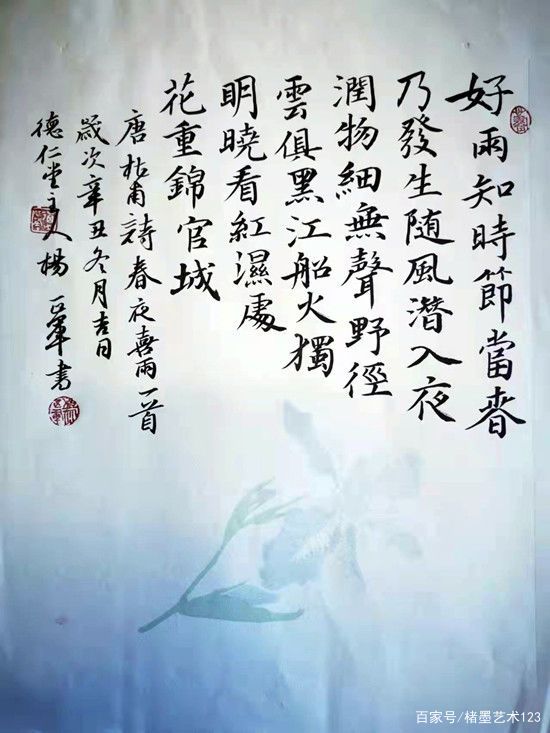 好雨知時節當春
乃發生随風潛入夜
潤物細無聲野徑
雲俱黑江船火獨
明曉看紅濕處
花重錦官城
唐杜甫詩春夜喜雨一首
歲次辛丑冬月吉日
德仁堂主人楊正軍書
百家号/楮墨艺术123